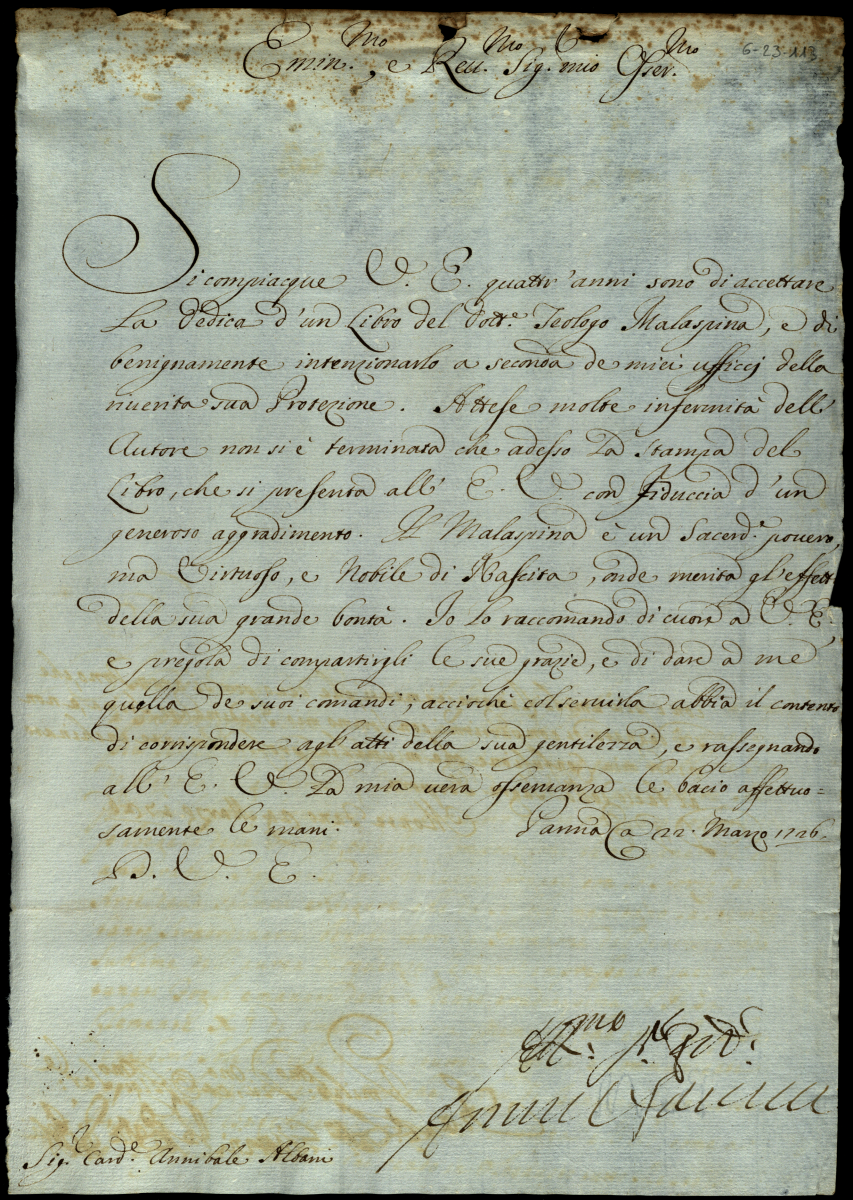 6-23-113
Emin.mo, e Reu.mo Sig.r mio Osser.mo
Si compiacque V. E. quattr'anni sono di accettare
La Dedica d'un Libro del Dott.e Teologo Malaspina, e di
benignamente intenzionarlo a seconda de miei ufficcj della
riverita sua Protezione. Attese molte infermità dell'
Autore non si è terminata che adesso La Stampa del
Libro, che si presenta all' E. V. con fiduccia d'un
generoso aggradimento. Il Malaspina è un Sacerd.e povero,
ma Virtuoso, e Nobile di Nascita, onde merita gl'effett
della sua grande bontà. Io Lo raccomando di cuore a V. E.
e pregola di compartirgli le sue grazie, e di dare a me
quella de suoi comandi, acciochè col servirla abbia il contento
di corrispondere agl'atti della sua gentilezza, e rassegnando
all' E. V. La mia vera osservanza le bacio affettuo=
samente le mani. Parma a 22. Marzo 1726.
D. V. E.
Sig.r Card.e Annibale Albani